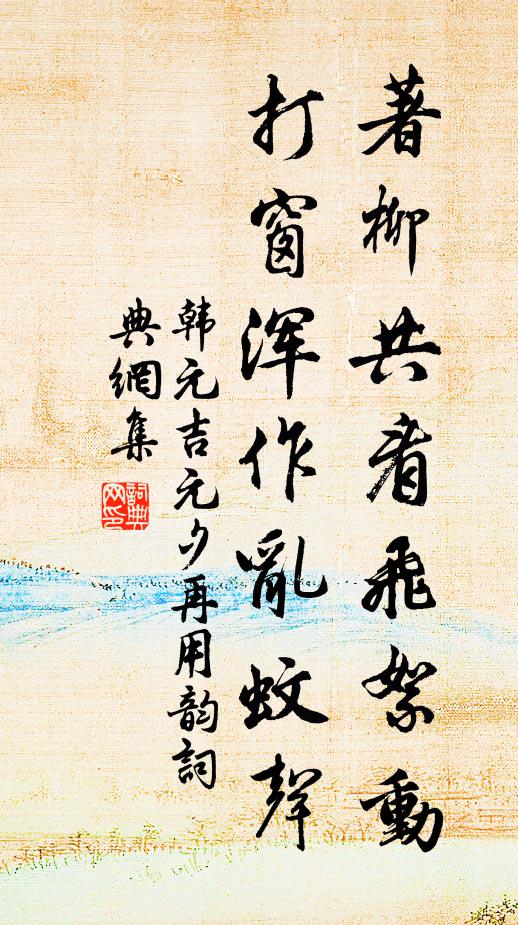 著柳共看飛絮動
打窗渾作亂蚊聲
韩元吉元夕再用韵詞
典網集
詞典
网印